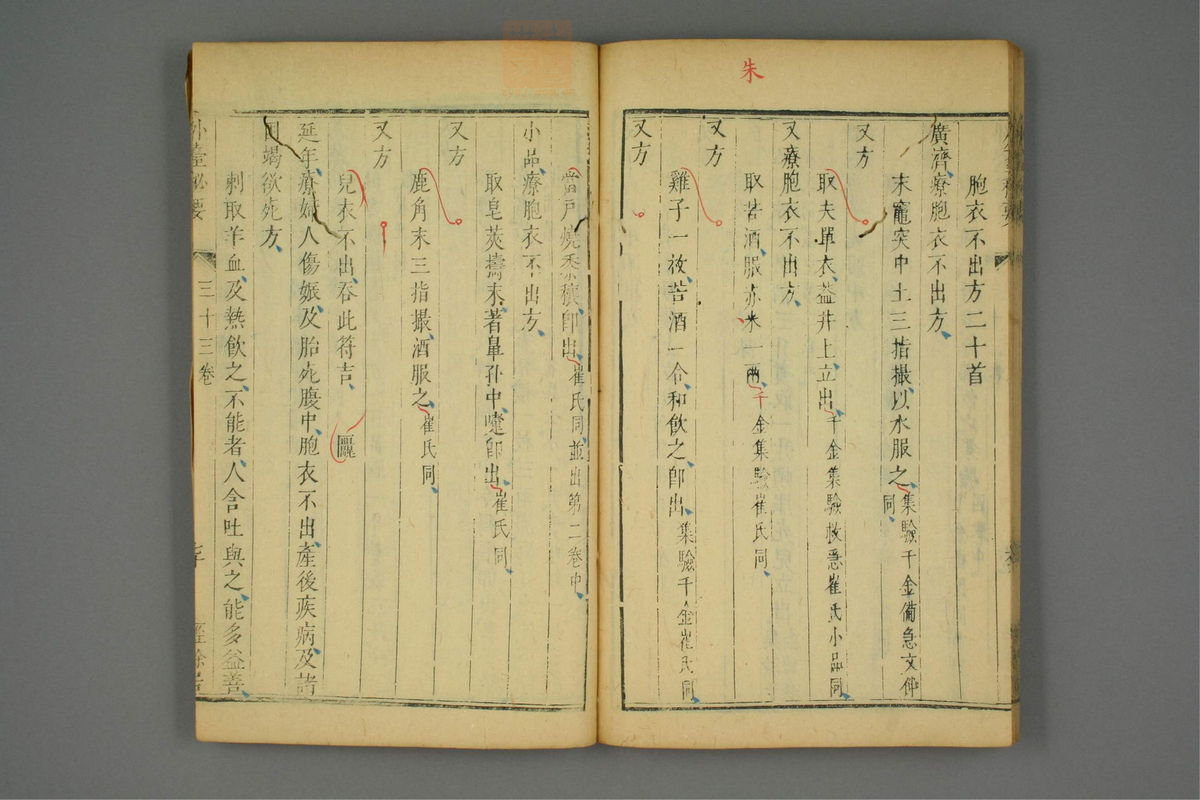 朱
胞衣不出方二十首
廣濟療胞衣不出方
末竈突中土三指撮以水服之集驗千金備急文仲同
又方
取夫單衣蓋井上立出千金集驗救急崔氏小品同
又療胞衣不出方
取苦酒服赤米一兩千金集驗崔氏同
又方
雞子一枚苦酒一合和飲之卽出集驗千金崔氏同
又方
當戶燒黍穰卽出崔氏同並出第二卷中
小品療胞衣不出方
取皂莢擣末著鼻孔中嚏卽出崔氏同
又方
鹿角末三指撮酒服之崔氏同
又方
兒衣不出吞此符吉
延年療婦人傷娠及胎死腹中胞衣不出產後疾病及諸
困竭欲死方
刺取羊血及熱飲之不能者人含吐與之能多益善
外臺秘要
三十三卷
經餘居